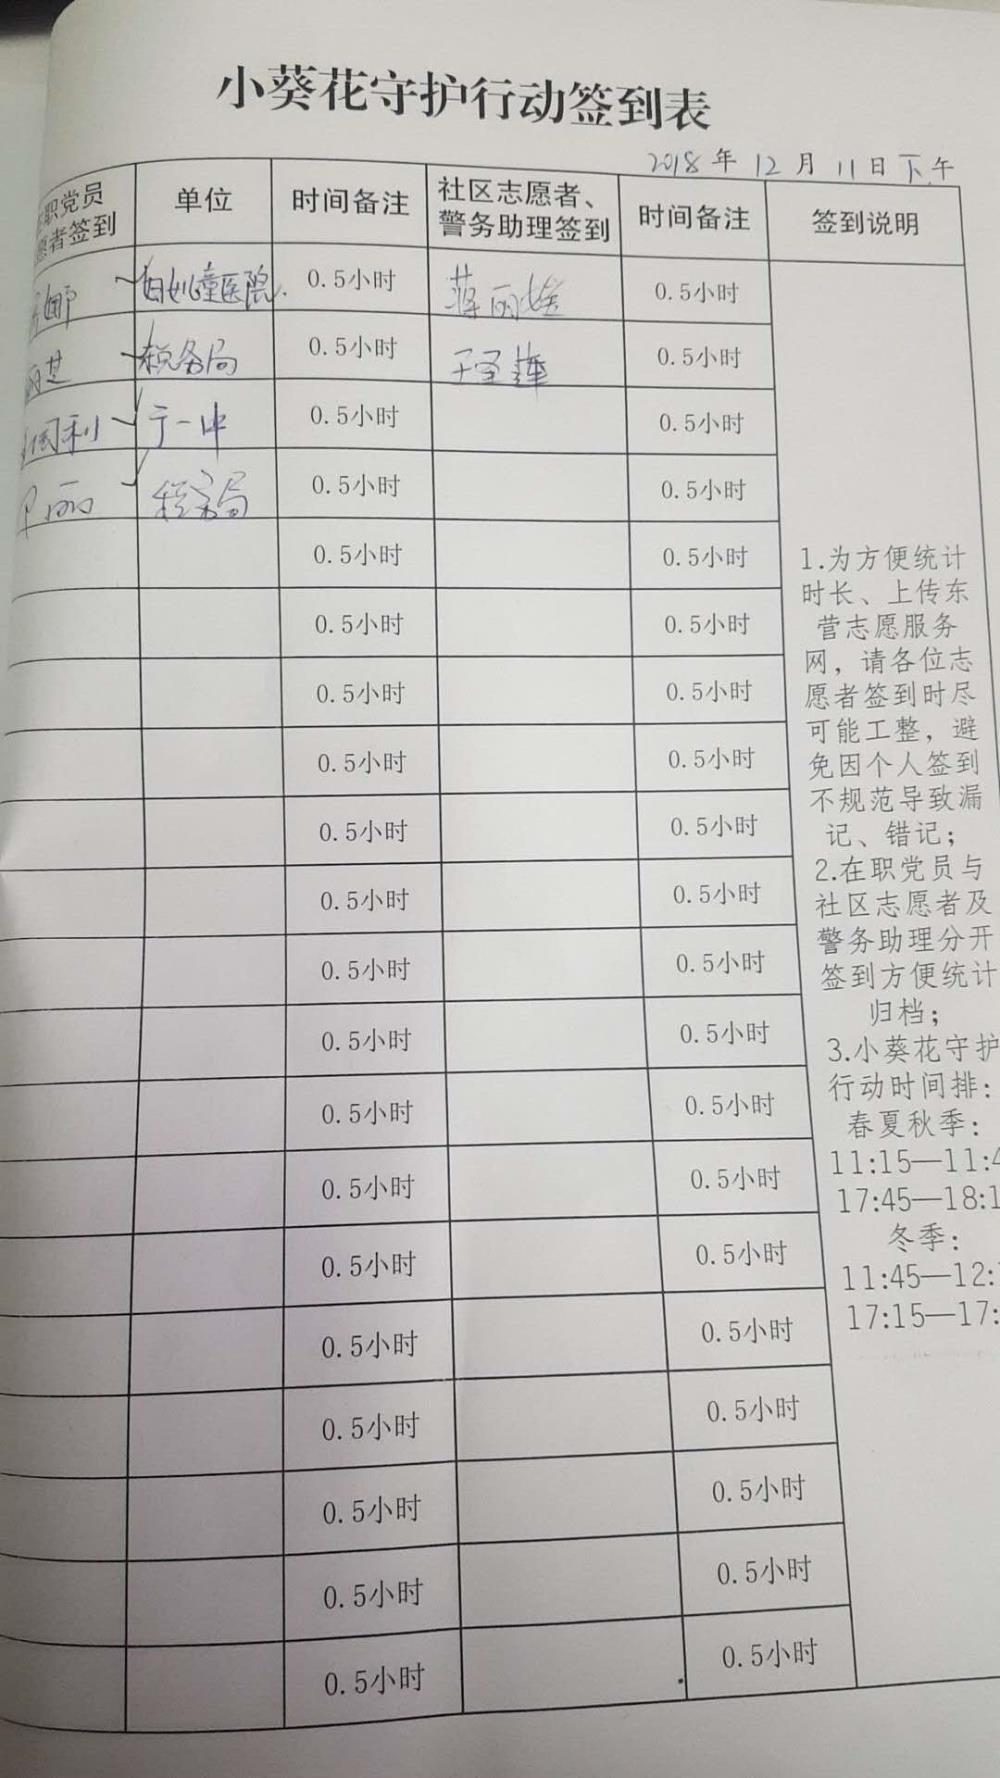 小葵花守护行动签到表
2018年12月11日下午
职党员
愿者签到
单位
时间备注
社区志愿者、
警务助理签到
时间备注
签到说明
娜 妇女儿童医院 0.5小时 0.5小时
税务局 0.5小时 0.5小时
利 0.5小时 0.5小时
丽 税务局 0.5小时 0.5小时
0.5小时 0.5小时
0.5小时 0.5小时
0.5小时 0.5小时
0.5小时 0.5小时
0.5小时 0.5小时
0.5小时 0.5小时
0.5小时 0.5小时
0.5小时 0.5小时
0.5小时 0.5小时
0.5小时 0.5小时
0.5小时 0.5小时
0.5小时 0.5小时
0.5小时 0.5小时
0.5小时 0.5小时
0.5小时 0.5小时
0.5小时 0.5小时
1.为方便统计
时长、上传东
营志愿服务
网，请各位志
愿者签到时尽
可能工整，避
免因个人签到
不规范导致漏
记、错记；
2.在职党员与
社区志愿者及
警务助理分开
签到方便统计
归档；
3.小葵花守护
行动时间排：
春夏秋季：
11:15—11:4
17:45—18:1
冬季：
11:45—12:
17:15—17: